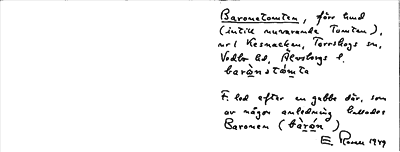 Baronetomten, förr lund
(intill nuvarande Tomten),
nr 1 Kesnacken, Torrskogs sn,
Vedbo hd, Älvsborgs l.
barò̱nstó̱mta
F. led efter en gubbe där, som
av någon anledning kallades
Baronen (bàrò̱n)
E. Rosen 1949